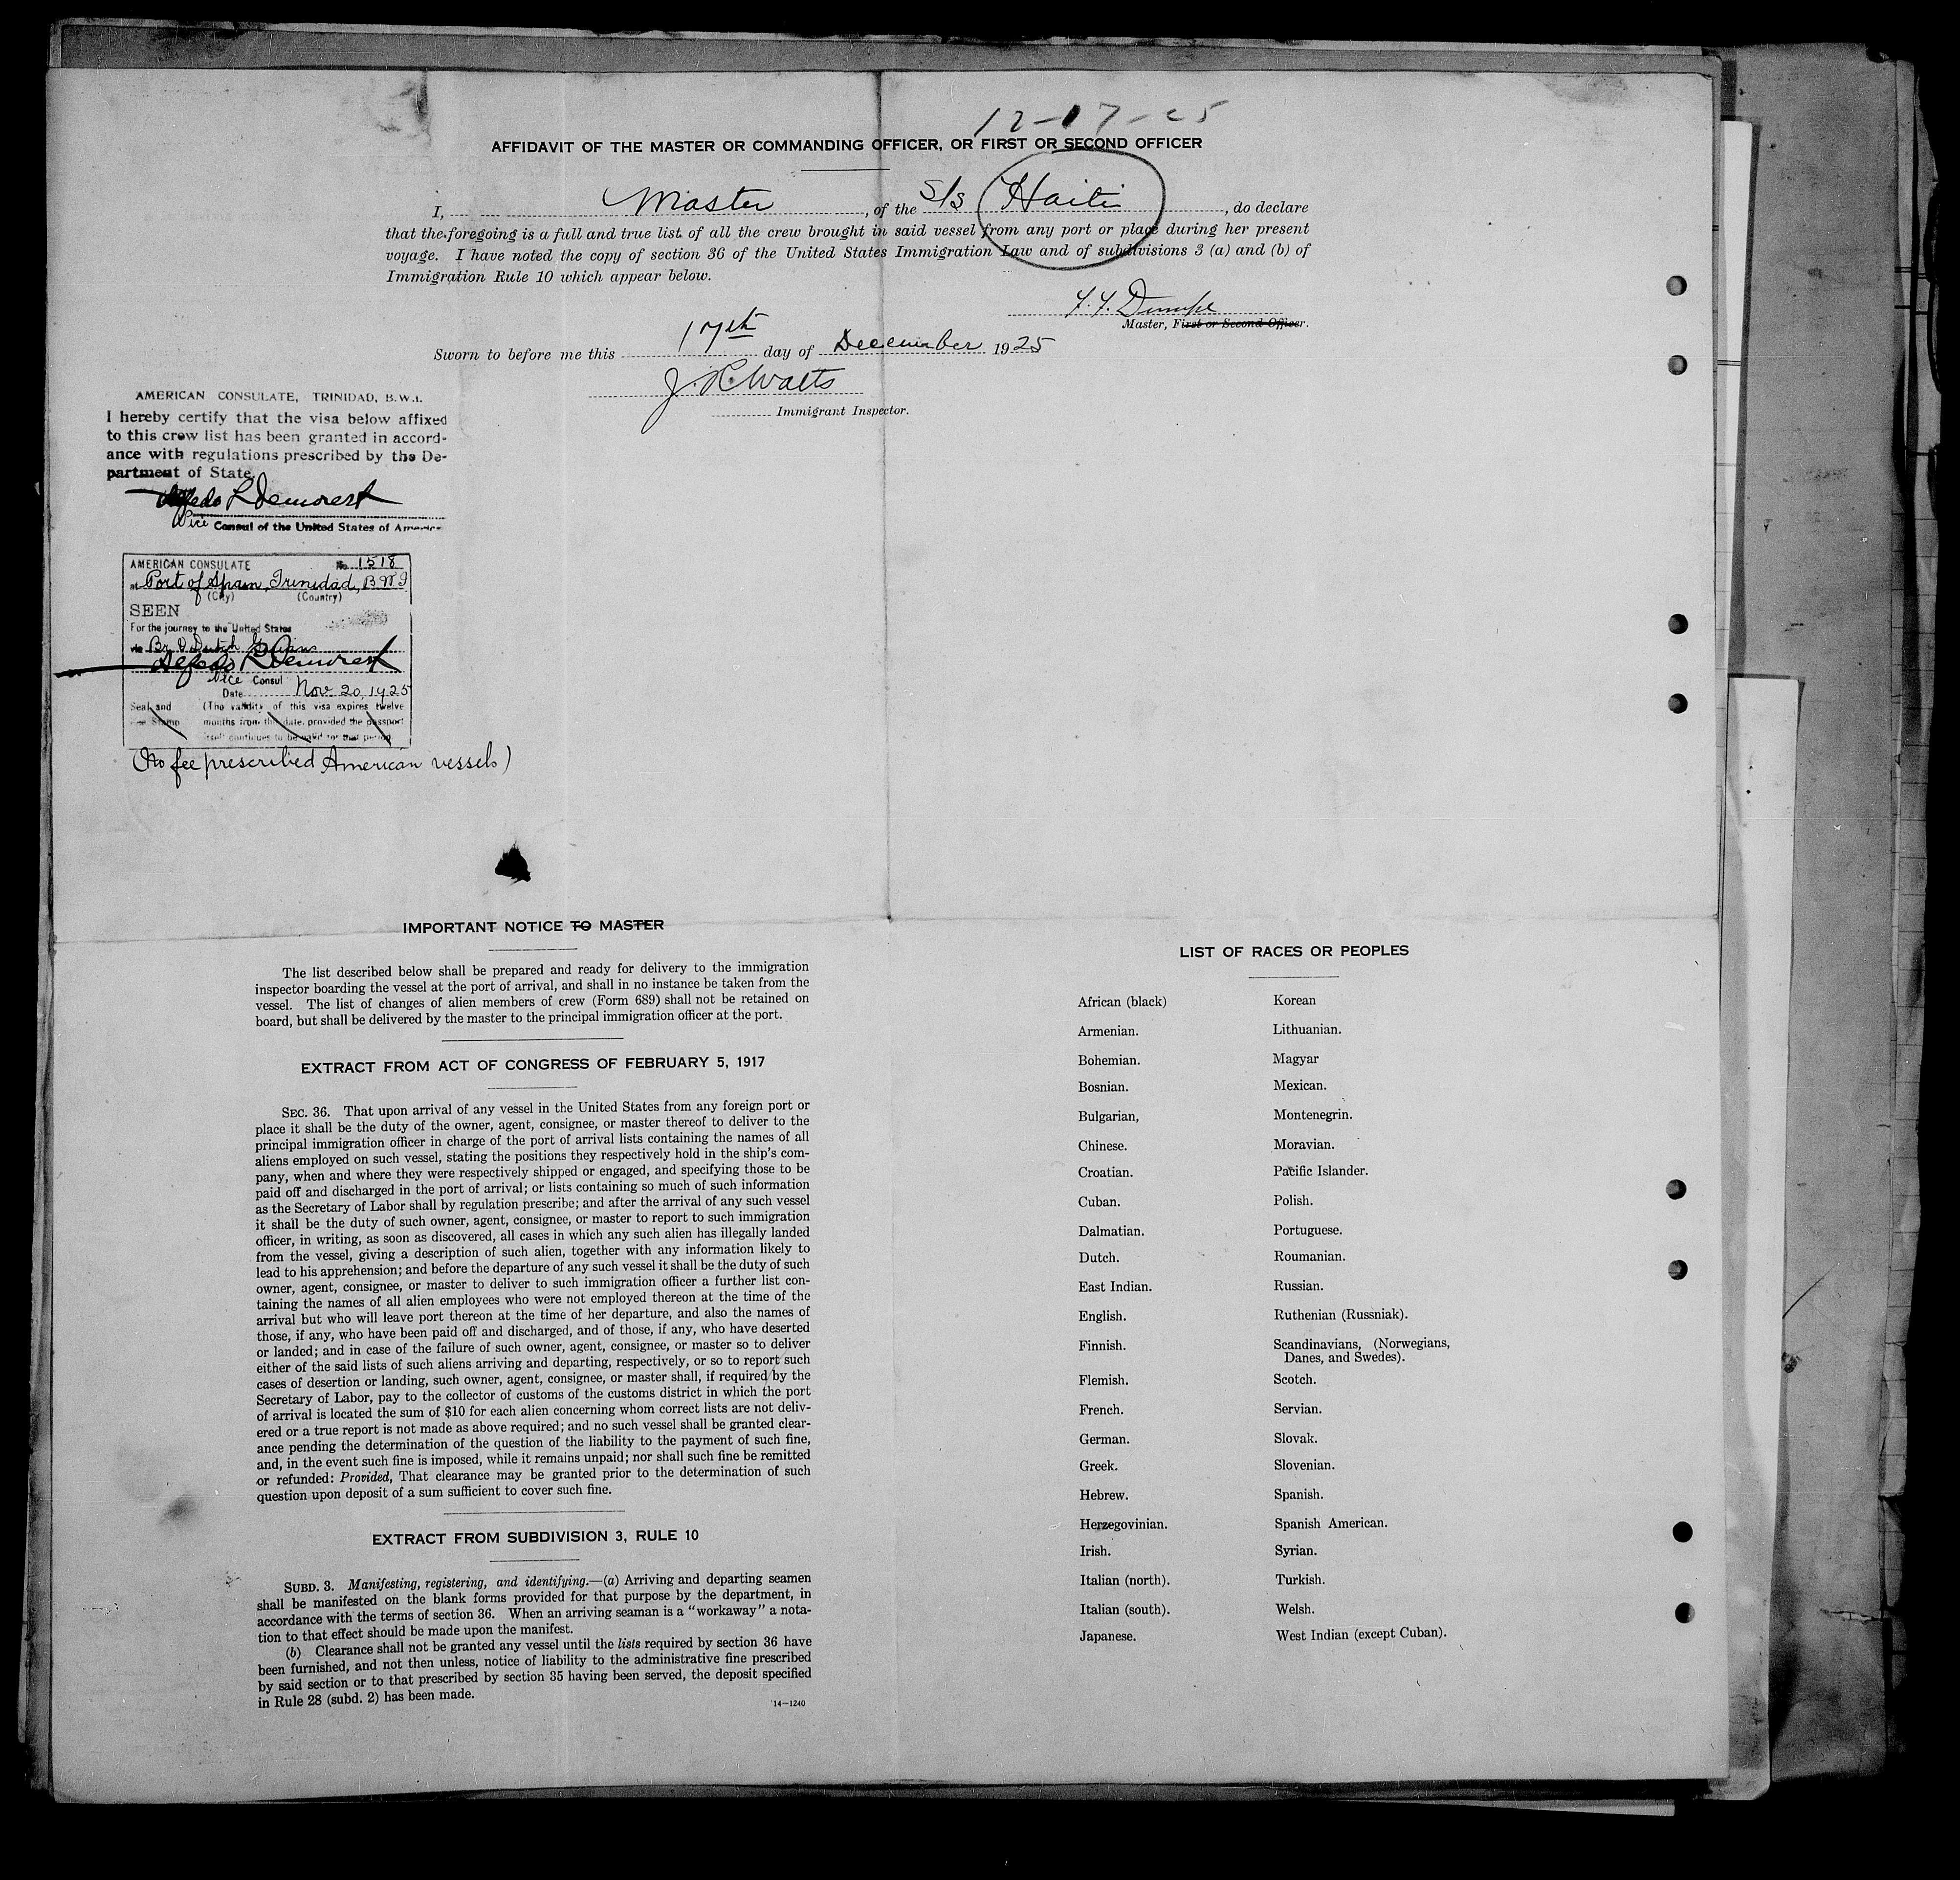 12-17-25
AFFIDAVIT OF THE MASTER OR COMMANDING OFFICER, OR FIRST OR SECOND OFFICER
I, Master, of the S/S Haiti, do declare
that the foregoing is a full and true list of all the crew brought in said vessel from any port or place during her present
voyage. I have noted the copy of section 36 of the United States Immigration Law and of subdivisions 3 (a) and (b) of
Immigration Rule 10 which appear below.
Master, First or Second Officer.
Sworn to before me this 17th day of December 1925
J. R. Watts
Immigrant Inspector.
AMERICAN CONSULATE, TRINIDAD, B.W.I.
I hereby certify that the visa below affixed
to this crew list has been granted in accord-
ance with regulations prescribed by the De-
partment of State.
Alfredo L Demorest
Vice Consul of the United States of America
AMERICAN CONSULATE No. 1518
at Port of Spain, Trinidad, B W I
(City) (Country)
SEEN
For the journey to the United States
via Br. & Dutch
Alfredo L Demorest
Vice Consul
Date Nov. 20, 1925
Seal and (The validity of this visa expires twelve
Fee Stamp months from this date, provided the passport
itself continues to be valid for that period.
(No fee prescribed American vessels)
IMPORTANT NOTICE TO MASTER
The list described below shall be prepared and ready for delivery to the immigration
inspector boarding the vessel at the port of arrival, and shall in no instance be taken from the
vessel. The list of changes of alien members of crew (Form 689) shall not be retained on
board, but shall be delivered by the master to the principal immigration officer at the port.
EXTRACT FROM ACT OF CONGRESS OF FEBRUARY 5, 1917
SEC. 36. That upon arrival of any vessel in the United States from any foreign port or
place it shall be the duty of the owner, agent, consignee, or master thereof to deliver to the
principal immigration officer in charge of the port of arrival lists containing the names of all
aliens employed on such vessel, stating the positions they respectively hold in the ship's com-
pany, when and where they were respectively shipped or engaged, and specifying those to be
paid off and discharged in the port of arrival; or lists containing so much of such information
as the Secretary of Labor shall by regulation prescribe; and after the arrival of any such vessel
it shall be the duty of such owner, agent, consignee, or master to report to such immigration
officer, in writing, as soon as discovered, all cases in which any such alien has illegally landed
from the vessel, giving a description of such alien, together with any information likely to
lead to his apprehension; and before the departure of any such vessel it shall be the duty of such
owner, agent, consignee, or master to deliver to such immigration officer a further list con-
taining the names of all alien employees who were not employed thereon at the time of the
arrival but who will leave port thereon at the time of her departure, and also the names of
those, if any, who have been paid off and discharged, and of those, if any, who have deserted
or landed; and in case of the failure of such owner, agent, consignee, or master so to deliver
either of the said lists of such aliens arriving and departing, respectively, or so to report such
cases of desertion or landing, such owner, agent, consignee, or master shall, if required by the
Secretary of Labor, pay to the collector of customs of the customs district in which the port
of arrival is located the sum of $10 for each alien concerning whom correct lists are not deliv-
ered or a true report is not made as above required; and no such vessel shall be granted clear-
ance pending the determination of the question of the liability to the payment of such fine,
and, in the event such fine is imposed, while it remains unpaid; nor shall such fine be remitted
or refunded: Provided, That clearance may be granted prior to the determination of such
question upon deposit of a sum sufficient to cover such fine.
EXTRACT FROM SUBDIVISION 3, RULE 10
SUBD. 3. Manifesting, registering, and identifying.—(a) Arriving and departing seamen
shall be manifested on the blank forms provided for that purpose by the department, in
accordance with the terms of section 36. When an arriving seaman is a "workaway" a nota-
tion to that effect should be made upon the manifest.
(b) Clearance shall not be granted any vessel until the lists required by section 36 have
been furnished, and not then unless, notice of liability to the administrative fine prescribed
by said section or to that prescribed by section 35 having been served, the deposit specified
in Rule 28 (subd. 2) has been made.
14—1240
LIST OF RACES OR PEOPLES
African (black) Korean
Armenian. Lithuanian.
Bohemian. Magyar
Bosnian. Mexican.
Bulgarian, Montenegrin.
Chinese. Moravian.
Croatian. Pacific Islander.
Cuban. Polish.
Dalmatian. Portuguese.
Dutch. Roumanian.
East Indian. Russian.
English. Ruthenian (Russniak).
Finnish. Scandinavians, (Norwegians,
Danes, and Swedes).
Flemish. Scotch.
French. Servian.
German. Slovak.
Greek. Slovenian.
Hebrew. Spanish.
Herzegovinian. Spanish American.
Irish. Syrian.
Italian (north). Turkish.
Italian (south). Welsh.
Japanese. West Indian (except Cuban).